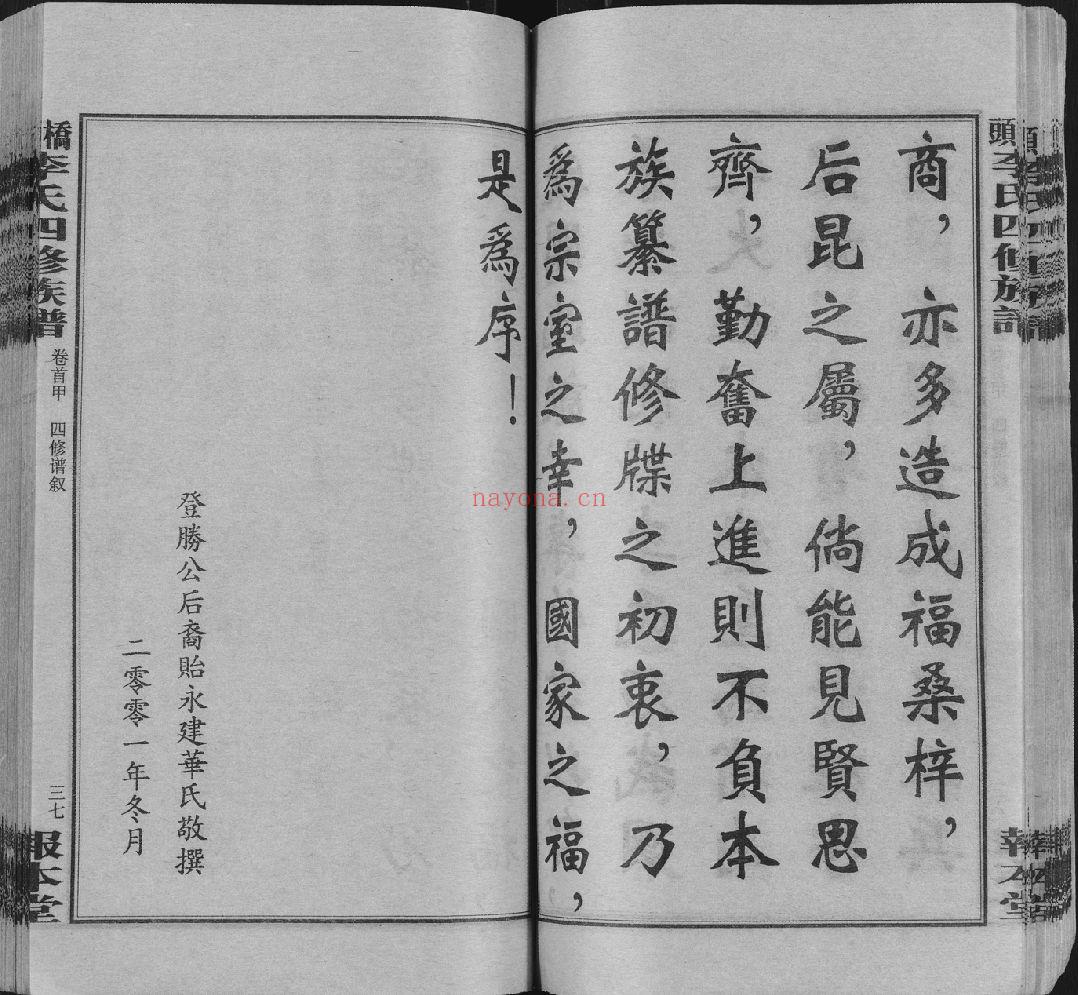 商，亦多造成福桑梓，
后昆之屬，倘能見賢思
齊，勤奮上進則不負本
族纂譜修牒之初衷，乃
為宗室之幸，國家之福，
是為序！
登勝公后裔貽永建華氏敬撰
二零零一年冬月
橋李氏四修族譜
卷首甲 四修谱叙
三七
報本堂
頭李氏四修族譜
nayona.cn